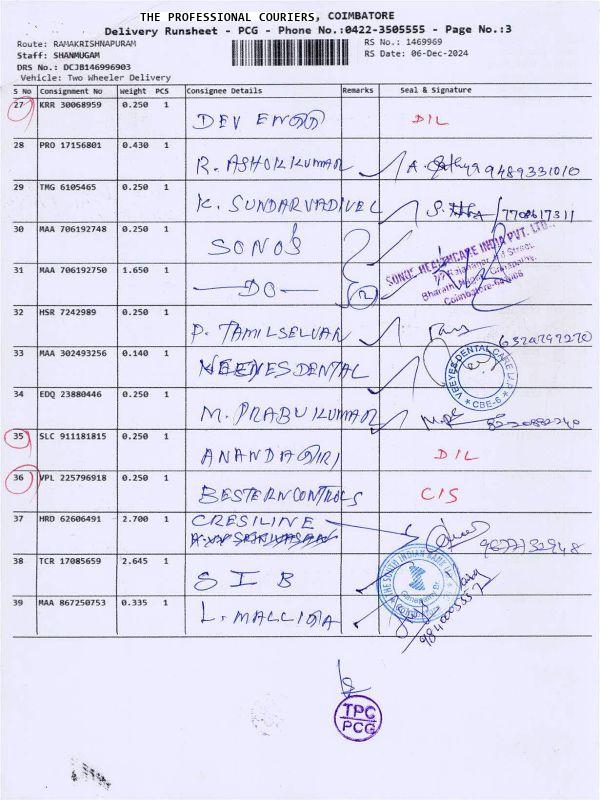 THE PROFESSIONAL COURIERS, COIMBATORE
Delivery Runsheet - PCG - Phone No.:0422-3505555 - Page No.:3
Route: RAMAKRISHNAPURAM
RS No.: 1469969
Staff: SHANMUGAM
RS Date: 06-Dec-2024
DRS No.: DCJB146996903
Vehicle: Two Wheeler Delivery
S No Consignment No Weight PCS Consignee Details Remarks Seal & Signature
27 KRR 30068959 0.250 1 DEV ENGG DIL
28 PRO 17156801 0.430 1 R. ASHOKKUMAR 9489331010
29 TMG 6105465 0.250 1 K. SUNDARVADIVEL 7708617311
30 MAA 706192748 0.250 1 SONO'S
31 MAA 706192750 1.650 1 —DO— 2
SONOS HEALTHCARE INDIA PVT. LTD.
32 HSR 7242989 0.250 1 P. TAMILSELVAN
33 MAA 302493256 0.140 1 VEEYES DENTAL
VEEYES DENTAL CARE LLP
* CBE-6 *
34 EDQ 23880446 0.250 1 M. PRABUKUMAR
35 SLC 911181815 0.250 1 ANANDAGIRI DIL
36 VPL 225796918 0.250 1 BESTERN CONTROLS CIS
37 HRD 62606491 2.700 1 CRESILINE
38 TCR 17085659 2.645 1 SIB
THE SOUTH INDIAN BANK
39 MAA 867250753 0.335 1 L. MALLIGA
TPC
PCG